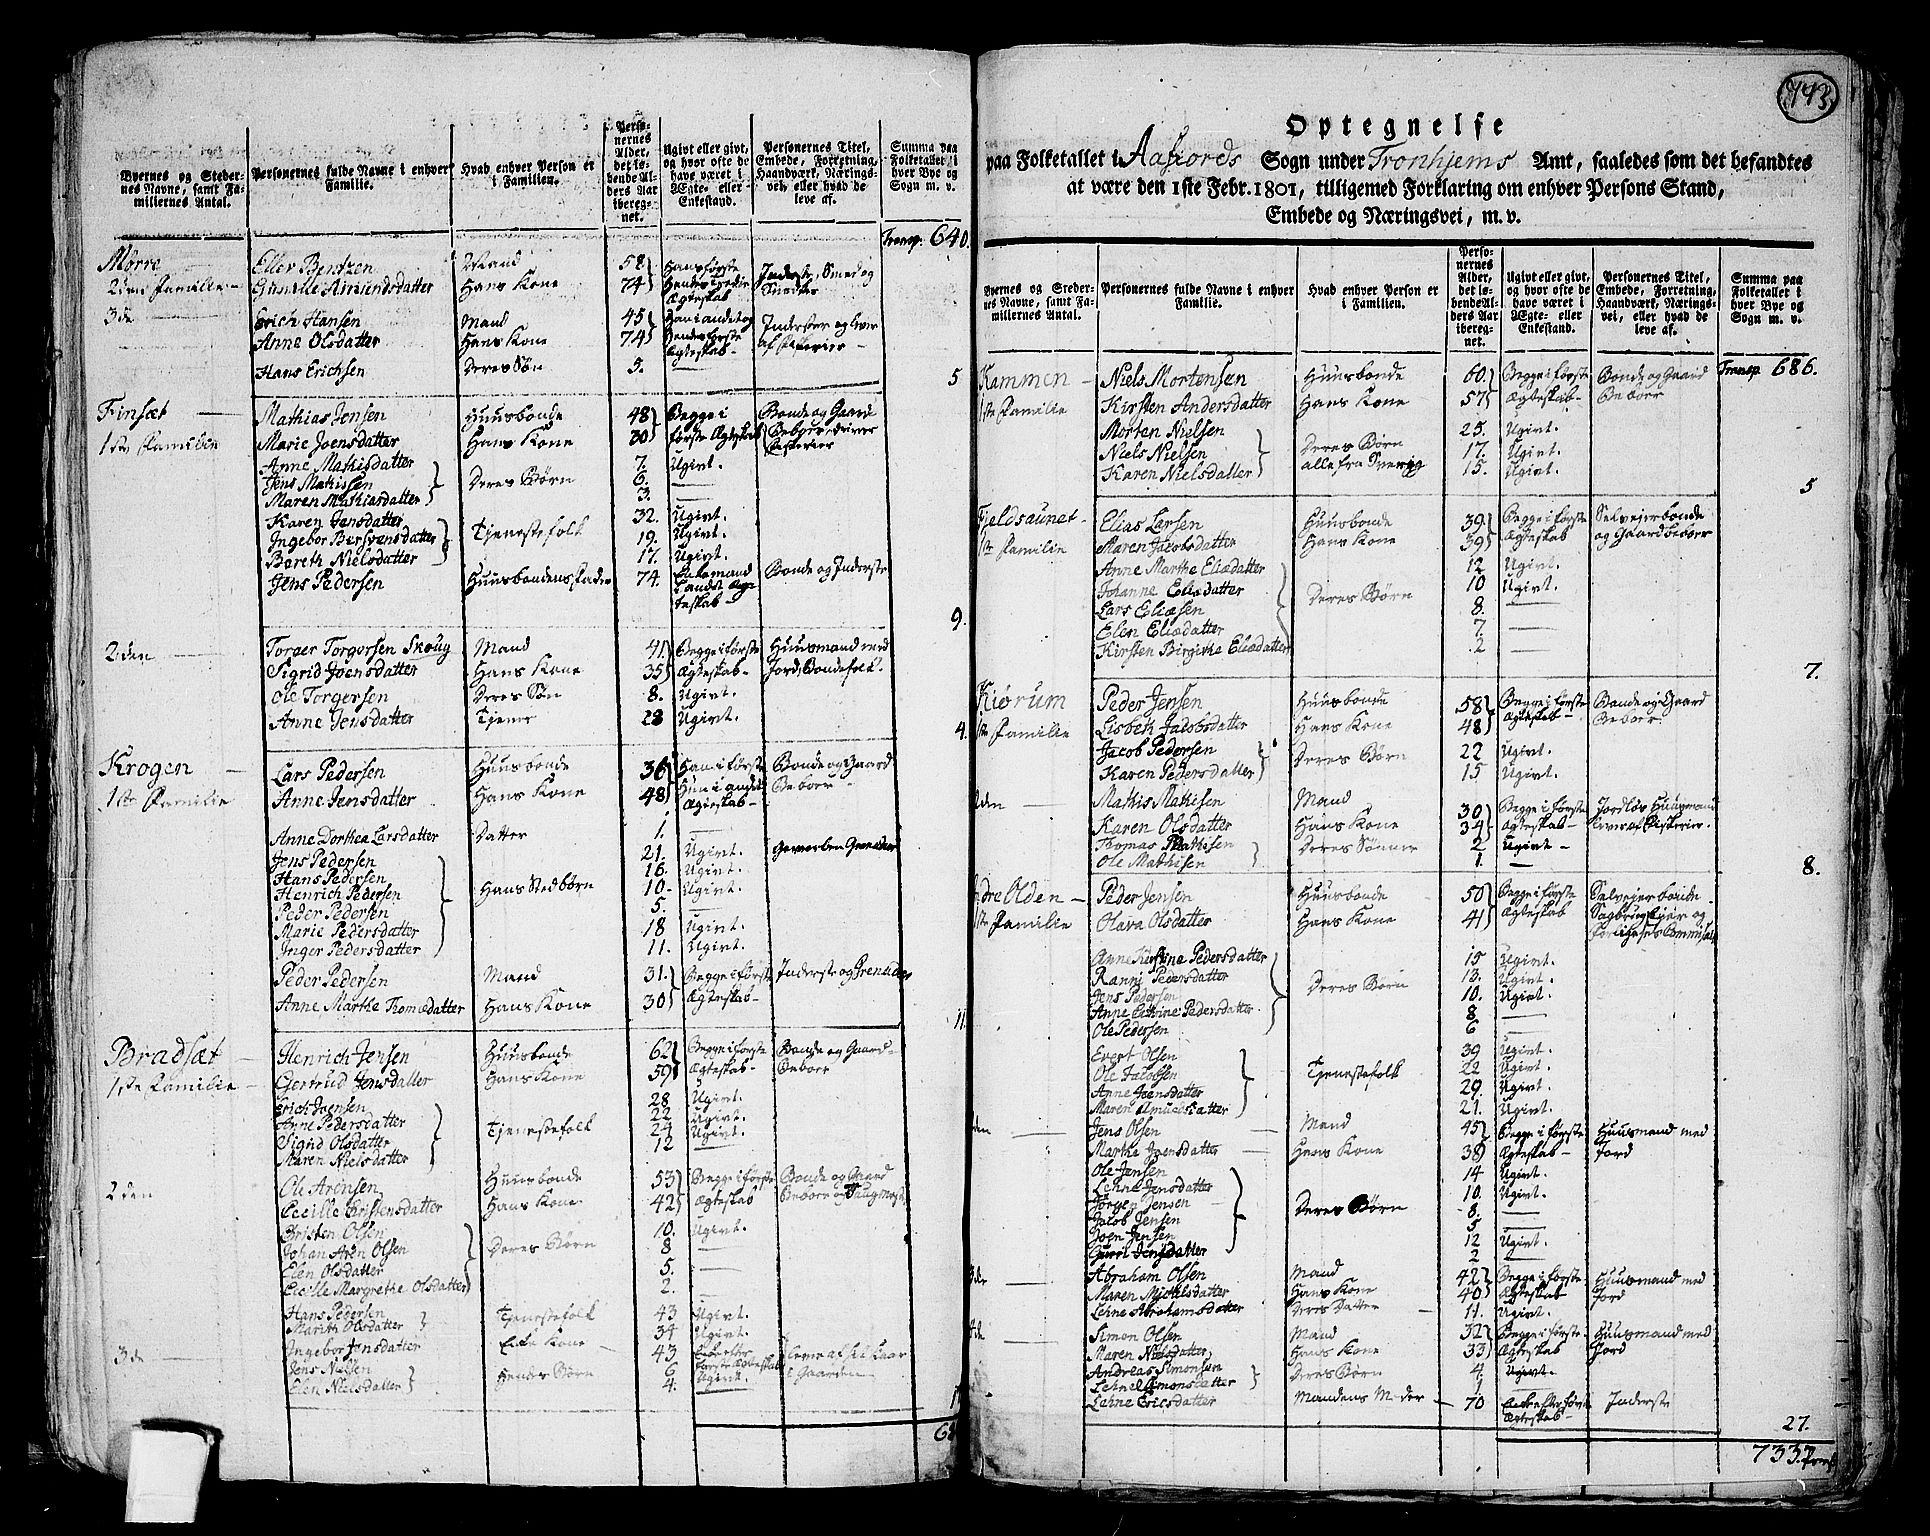 Byernes og Steder-
nes Navne, samt Fa-
miliernes Antal.
Personernes fulde Navne i enhver
Familie.
Hvad enhver Person er
i Familien.
Perso-
nernes
Alder,
det lø-
bende Al-
ders Aar
ibereg-
net.
Ugivt eller givt,
og hvor ofte de
have været i
Ægte- eller
Enkestand.
Personernes Titel,
Embede, Forretning,
Haandværk, Nærings-
vei, eller hvad de
leve af.
Summa paa
Folketallet i
hver Bye og
Sogn m. v.
Transp. 640.
Mørre Eller Bentzen Mand 58 Hans første Inderste, Smed og
2den Familie Gunille Amundsdatter Hans Kone 74 Hendes
Ægteskab
3de Erich Hansen Mand 45 Han i andet og Inderster og lever
Anne Olsdatter Hans Kone 74 Hendes første af Fiskerier
Ægteskab
Hans Erichsen Deres Søn 5. 5
Finsæt Mathias Jensen Huusbonde 48 Begge i Bonde og Gaard
1ste Familie Marie Joensdatter Hans Kone 30 første Ægteskab Beboer driver
Fiskerier
Anne Mathisdatter 7. Ugivt.
Jens Mathissen Deres Børn 6.
Maren Mathiasdatter 3.
Karen Jensdatter 32. Ugivt.
Ingebor Bersvensdatter Tjenestefolk 19. Ugivt.
Bereth Nielsdatter 17. Ugivt.
Jens Pedersen Huusbondens Fader 74. Enkemand Bonde og Inderste
teskab
9.
2den Torger Torgersen Skoug Mand 41 Begge i første Huusmand med
Sigrid Joensdatter Hans Kone 35 Ægteskab Jord Bondefolk
Ole Torgersen Deres Søn 8. Ugivt.
Anne Jensdatter Tjener 28 Ugivt. 4.
Krogen Lars Pedersen Huusbonde 36 Han i første Bonde og Gaard
1ste Familie Anne Jensdatter Hans Kone 48 Hun i andet Beboer
Ægteskab
Anne Dorthea Larsdatter Datter 1.
Jens Pedersen 21. Ugivt. Geworben Grenader
Hans Pedersen 16. Ugivt.
Henrich Pedersen Hans Stedbørn 10. Ugivt.
Peder Pedersen 5.
Marie Pedersdatter 18 Ugivt.
Inger Pedersdatter 11. Ugivt.
Peder Pedersen Mand 31. Begge i første Inderste og Grenader
Anne Marthe Tomædatter Hans Kone 30 Ægteskab
11.
Bradsæt Henrich Jensen Huusbonde 62 Begge i første Bonde og Gaard
1ste Familie Gertrud Jensdatter Hans Kone 59 Ægteskab Beboer
Erich Jvensen 28 Ugivt.
Anne Pedersdatter 22 Ugivt.
Sigrid Olsdatter Tjenestefolk 24 Ugivt.
Maren Nielsdatter 12
2den Ole Arensen Huusbonde 53 Begge i første Bonde og Gaard
Cecille Christensdatter Hans Kone 42 Ægteskab Beboer og
Christen Olsen 10. Ugivt.
Johan Aren Olsen Deres Børn 8
Elen Olsdatter 5.
Cecille Margrethe Olsdatter 2.
Hans Pedersen Tjenestefolk 43 Ugivt.
Marith Olsdatter 34 Ugivt.
3de Ingebor Jensdatter Enke Kone 43 Enke efter Lever af sit Kaar
første Ægteskab i Gaarden
Jens Nielsen Hendes Børn 6 Ugivt.
Elen Nielsdatter 4.
743
Optegnelse
paa Folketallet i Aafiords Sogn under Tronhjems Amt, saaledes som det befandtes
at være den 1ste Febr. 1801, tilligemed Forklaring om enhver Persons Stand,
Embede og Næringsvei, m. v.
Byernes og Steder-
nes Navne, samt Fa-
miliernes Antal.
Personernes fulde Navne i enhver
Familie.
Hvad enhver Person er
i Familien.
Perso-
nernes
Alder,
det lø-
bende Al-
ders Aar
ibereg-
net.
Ugivt eller givt,
og hvor ofte de
have været i
Ægte- eller
Enkestand.
Personernes Titel,
Embede, Forretning,
Haandværk, Nærings-
vei, eller hvad de
leve af.
Summa paa
Folketallet i
hver Bye og
Sogn m. v.
Transp. 686.
Kammen Niels Mortensen Huusbonde 60. Begge i første Bonde og Gaard
1ste Familie Kirsten Andersdatter Hans Kone 57 Ægteskab Beboer
Morten Nielsen 25. Ugivt.
Niels Nielsen Deres Børn 17. Ugivt.
Karen Nielsdatter alle fra Sverrig 15. Ugivt.
5
Fjeldsaunet Elias Larsen Huusbonde 39 Begge i første Selveierbonde
1ste Familie Maren Jacobsdatter Hans Kone 39 Ægteskab og Gaardbeboer
Anne Marthe Eliædatter 12 Ugivt.
Johanne Eliædatter Deres Børn 10 Ugivt.
Lars Eliæsen 8.
Elen Eliædatter 7.
Kirsten Birgithe Eliædatter 2
7.
Kiørum Peder Jensen Huusbonde 58 Begge i første Bonde og Gaard
1ste Familie Lisbeth Jacobsdatter Hans Kone 48 Ægteskab Beboer
Jacob Pedersen Deres Børn 22 Ugivt.
Karen Pedersdatter 15 Ugivt.
2den Mathis Mathisen Mand 30 Begge i første Jordløs Huusmand
Karen Olsdatter Hans Kone 34 Ægteskab lever af Fiskerier.
Thomas Mathisen Deres Sønner 2 Ugivt
Ole Mathisen 1.
8.
Ødre Olden Peder Jensen Huusbonde 50 Begge i første Selveierbonde
1ste Familie Olava Olsdatter Hans Kone 41 Ægteskab Sagbrugseier og
Forligelses Commissair
Anne Kirstine Pedersdatter 15 Ugivt.
Ranni Pedersdatter 13. Ugivt.
Jens Pedersen Deres Børn 10. Ugivt.
Anne Cathrine Pedersdatter 8
Ole Pedersen 6
Evert Olsen 39 Ugivt.
Ole Jacobsen Tjenestefolk 22 Ugivt.
Anne Joensdatter 29. Ugivt.
Maren Amundsdatter 21. Ugivt.
2den Jens Olsen Mand 45 Begge i første Huusmand med
Marthe Joensdatter Hans Kone 38 Ægteskab Jord
Ole Jensen 14 Ugivt.
Lehne Jensdatter 10. Ugivt.
Jørgen Jensen Deres Børn 8.
Jacob Jensen 5
Joen Jensen 12 Ugivt.
Gurri Jensdatter 2
3de Abraham Olsen Mand 42 Begge i første Huusmand med
Maren Michelsdatter Hans Kone 40 Ægteskab Jord
Lehne Abrahamsdatter Deres Datter 11. Ugivt.
4de Simon Olsen Mand 32 Begge i første Huusmand med
Maren Nielsdatter Hans Kone 33 Ægteskab Jord
Andreas Simonsen Deres Børn 4 Ugivt.
Lehne Simonsdatter 1
Lehne Ericsdatter Mandens Moder 70 Enke efter første Inderste
Ægteskab
27.
733. Transp